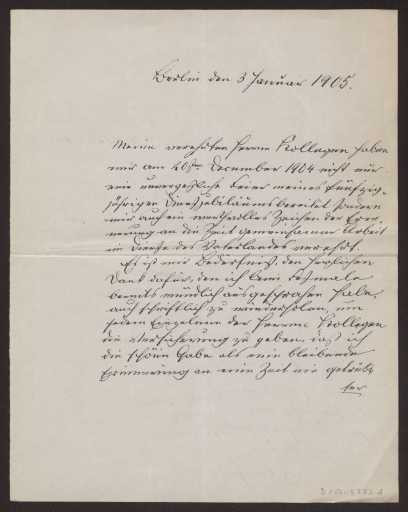 Berlin den 3 Januar 1905.
Meine verehrten Herrn Kollegen haben
mir am 20ten December 1904 nicht nur
eine unvergeßliche Feier meines fünfzig-
jährigen Dienstjubiläums bereitet sondern
mir auch ein werthvolles Zeichen der Erin-
nerung an die Zeit gemeinsamer Arbeit
im Dienste des Vaterlandes verehrt.
Es ist mir Bedürfniß, den herzlichen
Dank dafür, den ich beim Festmale
bereits mündlich ausgesprochen habe,
auch schriftlich zu wiederholen, um
jedem Einzelnen der Herrn Kollegen
die Versicherung zu geben, daß ich
die schöne Gabe als eine bleibende
Erinnerung an eine Zeit nie getrüb-
ter